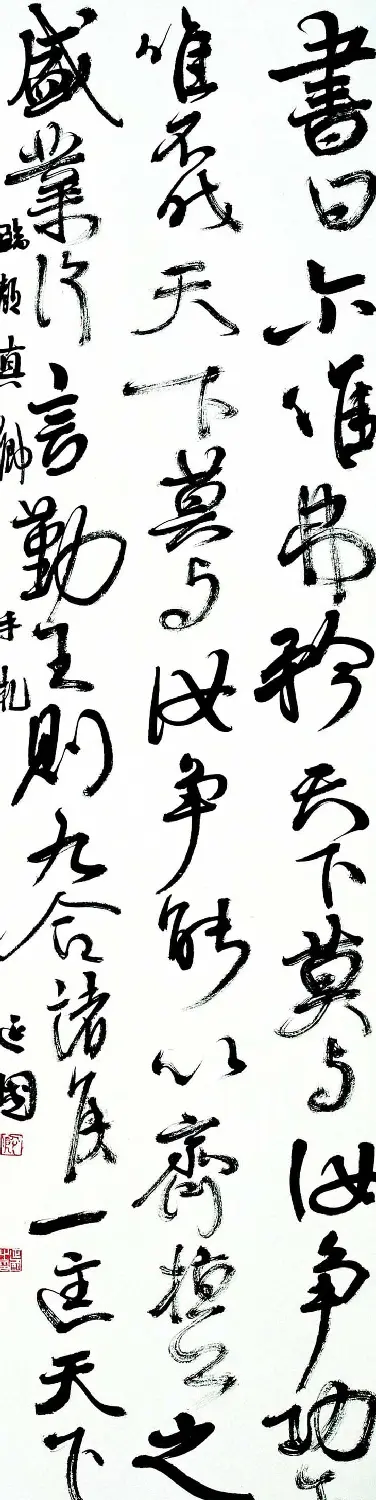 書曰尔唯弗矜天下莫与汝争功尔
唯不伐天下莫与汝争能以齊桓公之
盛業片言勤王則九合諸侯一匡天下
臨顏真卿手札